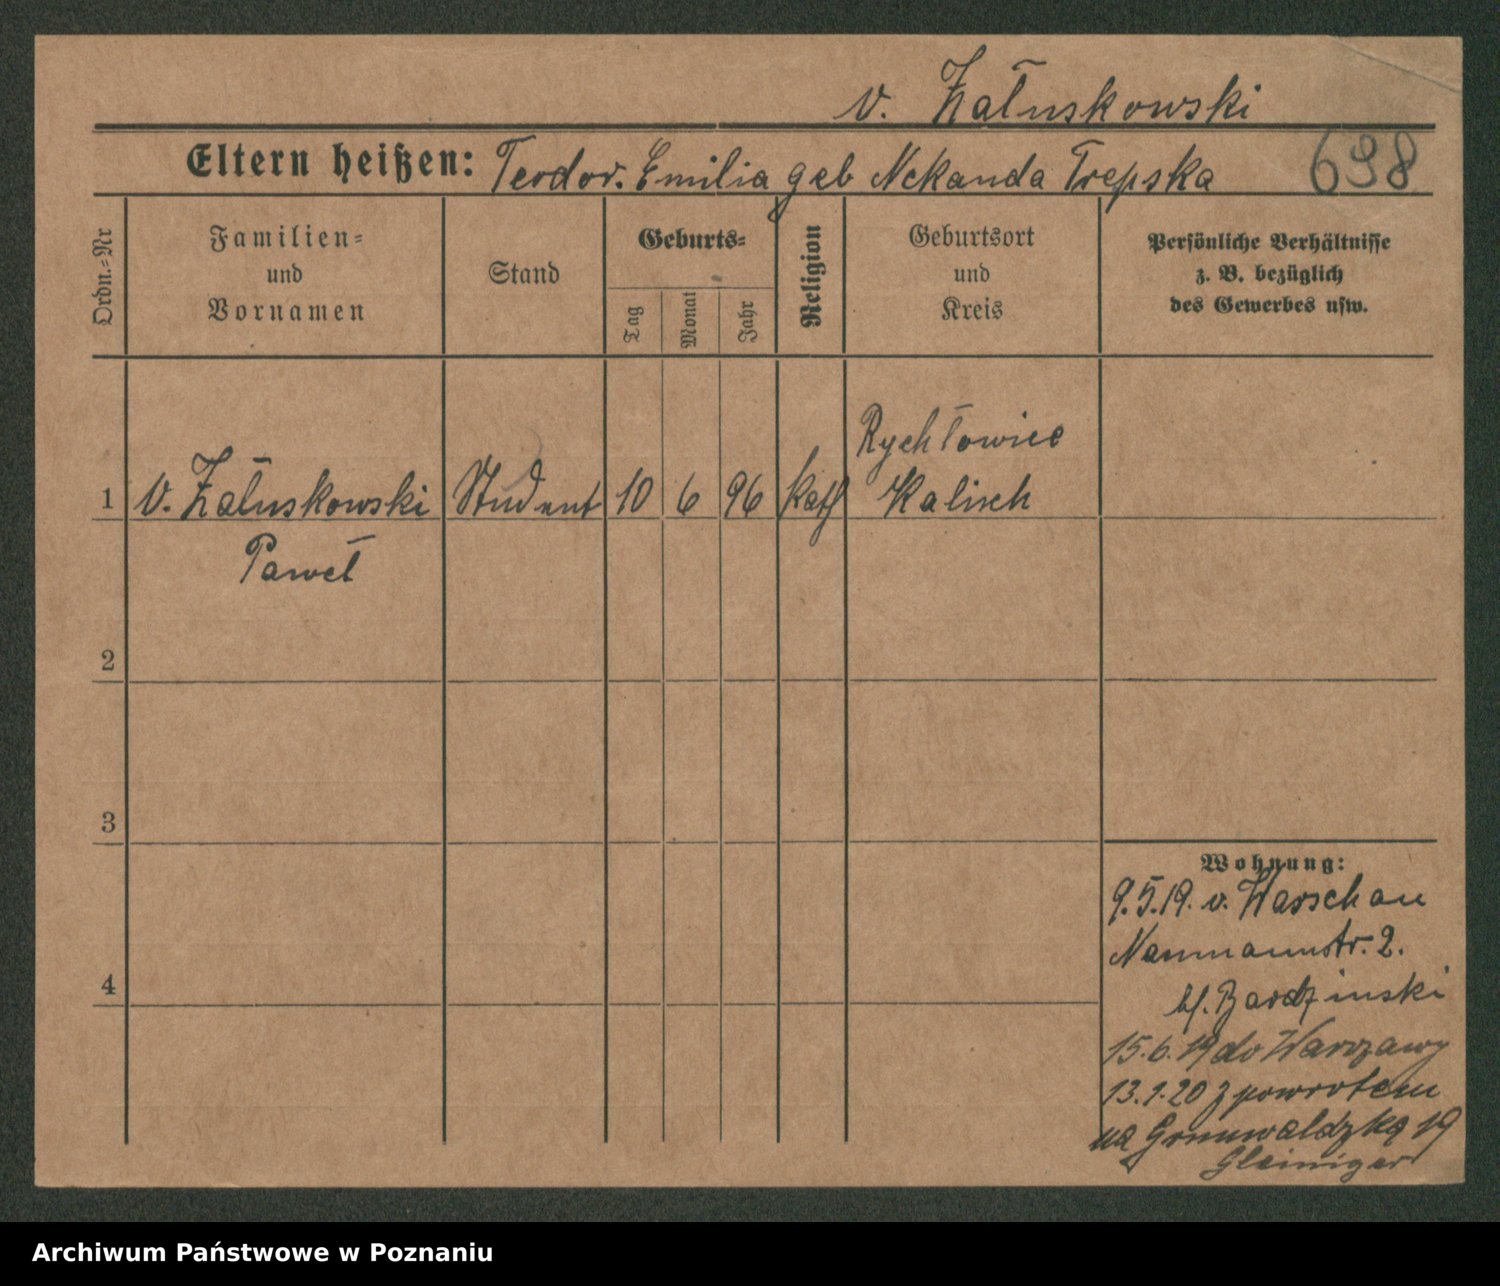 v. Załuskowski
Eltern heißen: Teodor. Emilia geb Nekanda Trepska
698
Ordn.=Nr
Familien=
und
Vornamen
Stand
Geburts=
Tag
Monat
Jahr
Religion
Geburtsort
und
Kreis
Persönliche Verhältnisse
z. B. bezüglich
des Gewerbes usw.
1 v. Załuskowski Student 10 6 96 kath Rychłowice
Kalisch
Paweł
2
3
4
Wohnung:
9.5.19. v. Warschau
Naumannstr. 2.
b/. Bardzinski
15.6.19 do Warszawy
13.1.20 z powrotem
na Grunwaldzką 19
Gleiniger
Archiwum Państwowe w Poznaniu